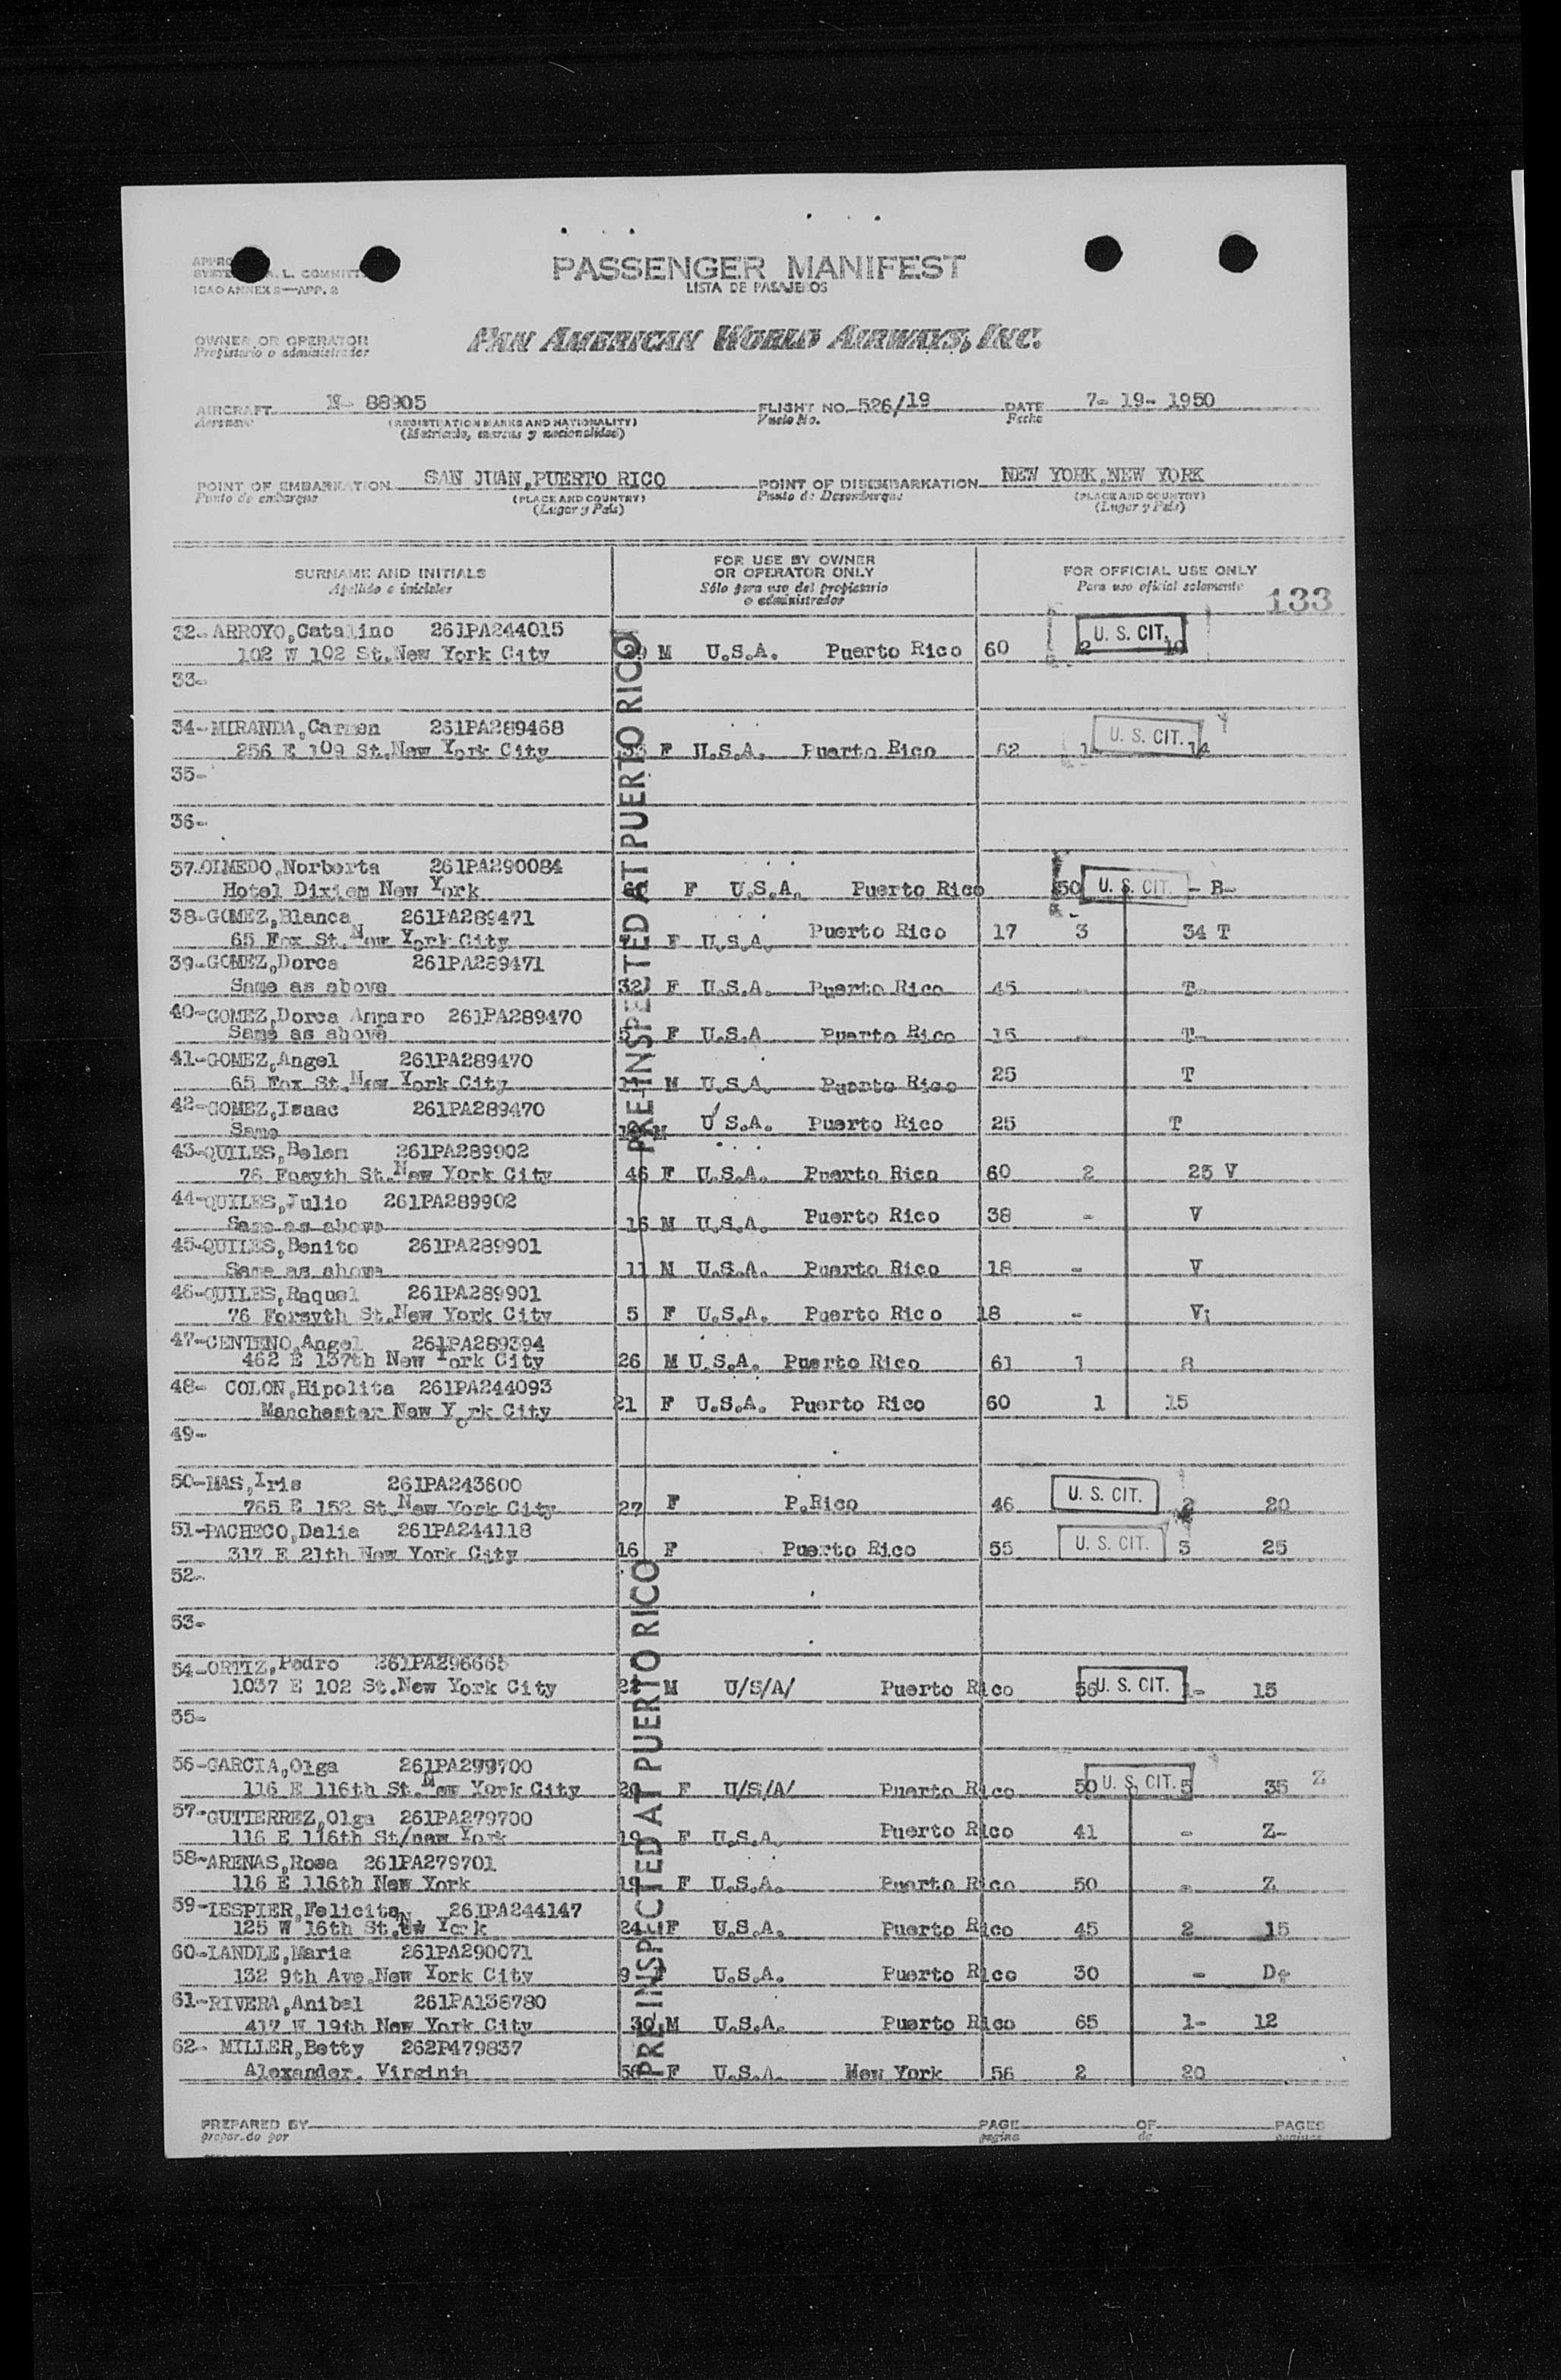 SYSTE A. L. COMMITT
ICAO ANNEX 2—APP. 2
PASSENGER MANIFEST
LISTA DE PASAJEROS
OWNER OR OPERATOR
Propietario o administrador
PAN AMERICAN WORLD AIRWAYS, INC.
AIRCRAFT N- 88905 FLIGHT NO. 526/19 DATE 7- 19- 1950
Aeronave (REGISTRATION MARKS AND NATIONALITY) Vuelo No. Fecha
(Matrícula, marcas y nacionalidad)
POINT OF EMBARKATION SAN JUAN,PUERTO RICO POINT OF DISEMBARKATION NEW YORK,NEW YORK
Punto de embarque (PLACE AND COUNTRY) Punto de Desembarque (PLACE AND COUNTRY)
(Lugar y País) (Lugar y País)
SURNAME AND INITIALS FOR USE BY OWNER OR OPERATOR ONLY FOR OFFICIAL USE ONLY
Apellido e iniciales Sólo para uso del propietario o administrador Para uso oficial solamente
133
PRE-INSPECTED AT PUERTO RICO
32- ARROYO,Catalino 261PA244015 U. S. CIT.
102 W 102 St.New York City 29 M U.S.A. Puerto Rico 60 2 10
33-
34-MIRANDA,Carmen 261PA289468 U. S. CIT.
256 E 109 St.New York City 33 F U.S.A. Puerto Rico 62 1 14
35-
36-
37.OLMEDO,Norberta 261PA290084
Hotel Dixiem New York F U.S.A. Puerto Rico 50 U. S. CIT. - B-
38-GOMEZ,Blanca 261PA289471
65 Fox St.New York City 7 F U.S.A. Puerto Rico 17 3 34 T
39-GOMEZ,Dorca 261PA289471
Same as above 32 F U.S.A. Puerto Rico 45 - T-
40-GOMEZ,Dorca Amparo 261PA289470
Same as above 5 F U.S.A Puerto Rico 15 - T-
41-GOMEZ,Angel 261PA289470
65 Fox St.New York City M U.S.A. Puerto Rico 25 T
42-GOMEZ,Isaac 261PA289470
Same M U S.A. Puerto Rico 25 T
43-QUILES,Belen 261PA289902
76 Fosyth St.New York City 46 F U.S.A. Puerto Rico 60 2 25 V
44-QUILES,Julio 261PA289902
Same as above 16 M U.S.A. Puerto Rico 38 - V
45-QUILES,Benito 261PA289901
Same as above 11 M U.S.A. Puerto Rico 18 - V
46-QUILES,Raquel 261PA289901
76 Forsyth St.New York City 5 F U.S.A. Puerto Rico 18 - V
47-CENTENO,Angel 261PA289394
462 E 137th New York City 26 M U.S.A. Puerto Rico 61 1 8
48- COLON,Hipolita 261PA244093
Manchester New York City 21 F U.S.A. Puerto Rico 60 1 15
49-
50-MAS,Iris 261PA243600
765 E 152 St.New York City 27 F P.Rico 46 U. S. CIT. 2 20
51-PACHECO,Dalia 261PA244118
317 E 21th New York City 16 F Puerto Rico 55 U. S. CIT. 3 25
52-
53-
PRE-INSPECTED AT PUERTO RICO
54-ORTIZ,Pedro 261PA296665
1037 E 102 St.New York City M U/S/A/ Puerto Rico 56 U. S. CIT. 1- 15
55-
56-GARCIA,Olga 261PA279700
116 E 116th St.New York City 20 F U/S/A/ Puerto Rico 50 U. S. CIT. 5 35 Z
57-GUTIERREZ,Olga 261PA279700
116 E 116th St/new York 19 F U.S.A Puerto Rico 41 - Z-
58-ARENAS,Rosa 261PA279701
116 E 116th New York 19 F U.S.A. Puerto Rico 50 - Z
59-LESPIER,Felicita 261PA244147
125 W 16th St.New York 24 F U.S.A. Puerto Rico 45 2 15
60-LANDLE,Maria 261PA290071
132 9th Ave.New York City 9 U.S.A. Puerto Rico 30 - D-
61-RIVERA,Anibal 261PA138780
417 W 19th New York City 30 M U.S.A. Puerto Rico 65 1- 12
62- MILLER,Betty 262P479837
Alexander. Virginia 56 F U.S.A. New York 56 2 20
PREPARED BY PAGE OF PAGES
preparado por pagina de paginas